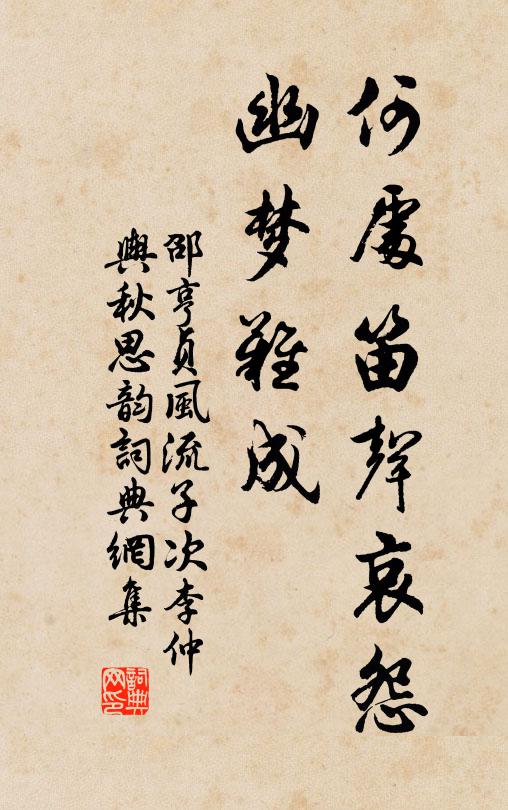 何處笛聲哀怨
幽梦難成
邵亨貞風流子次李仲
輿秋思韵詞典網集
詞典
网印